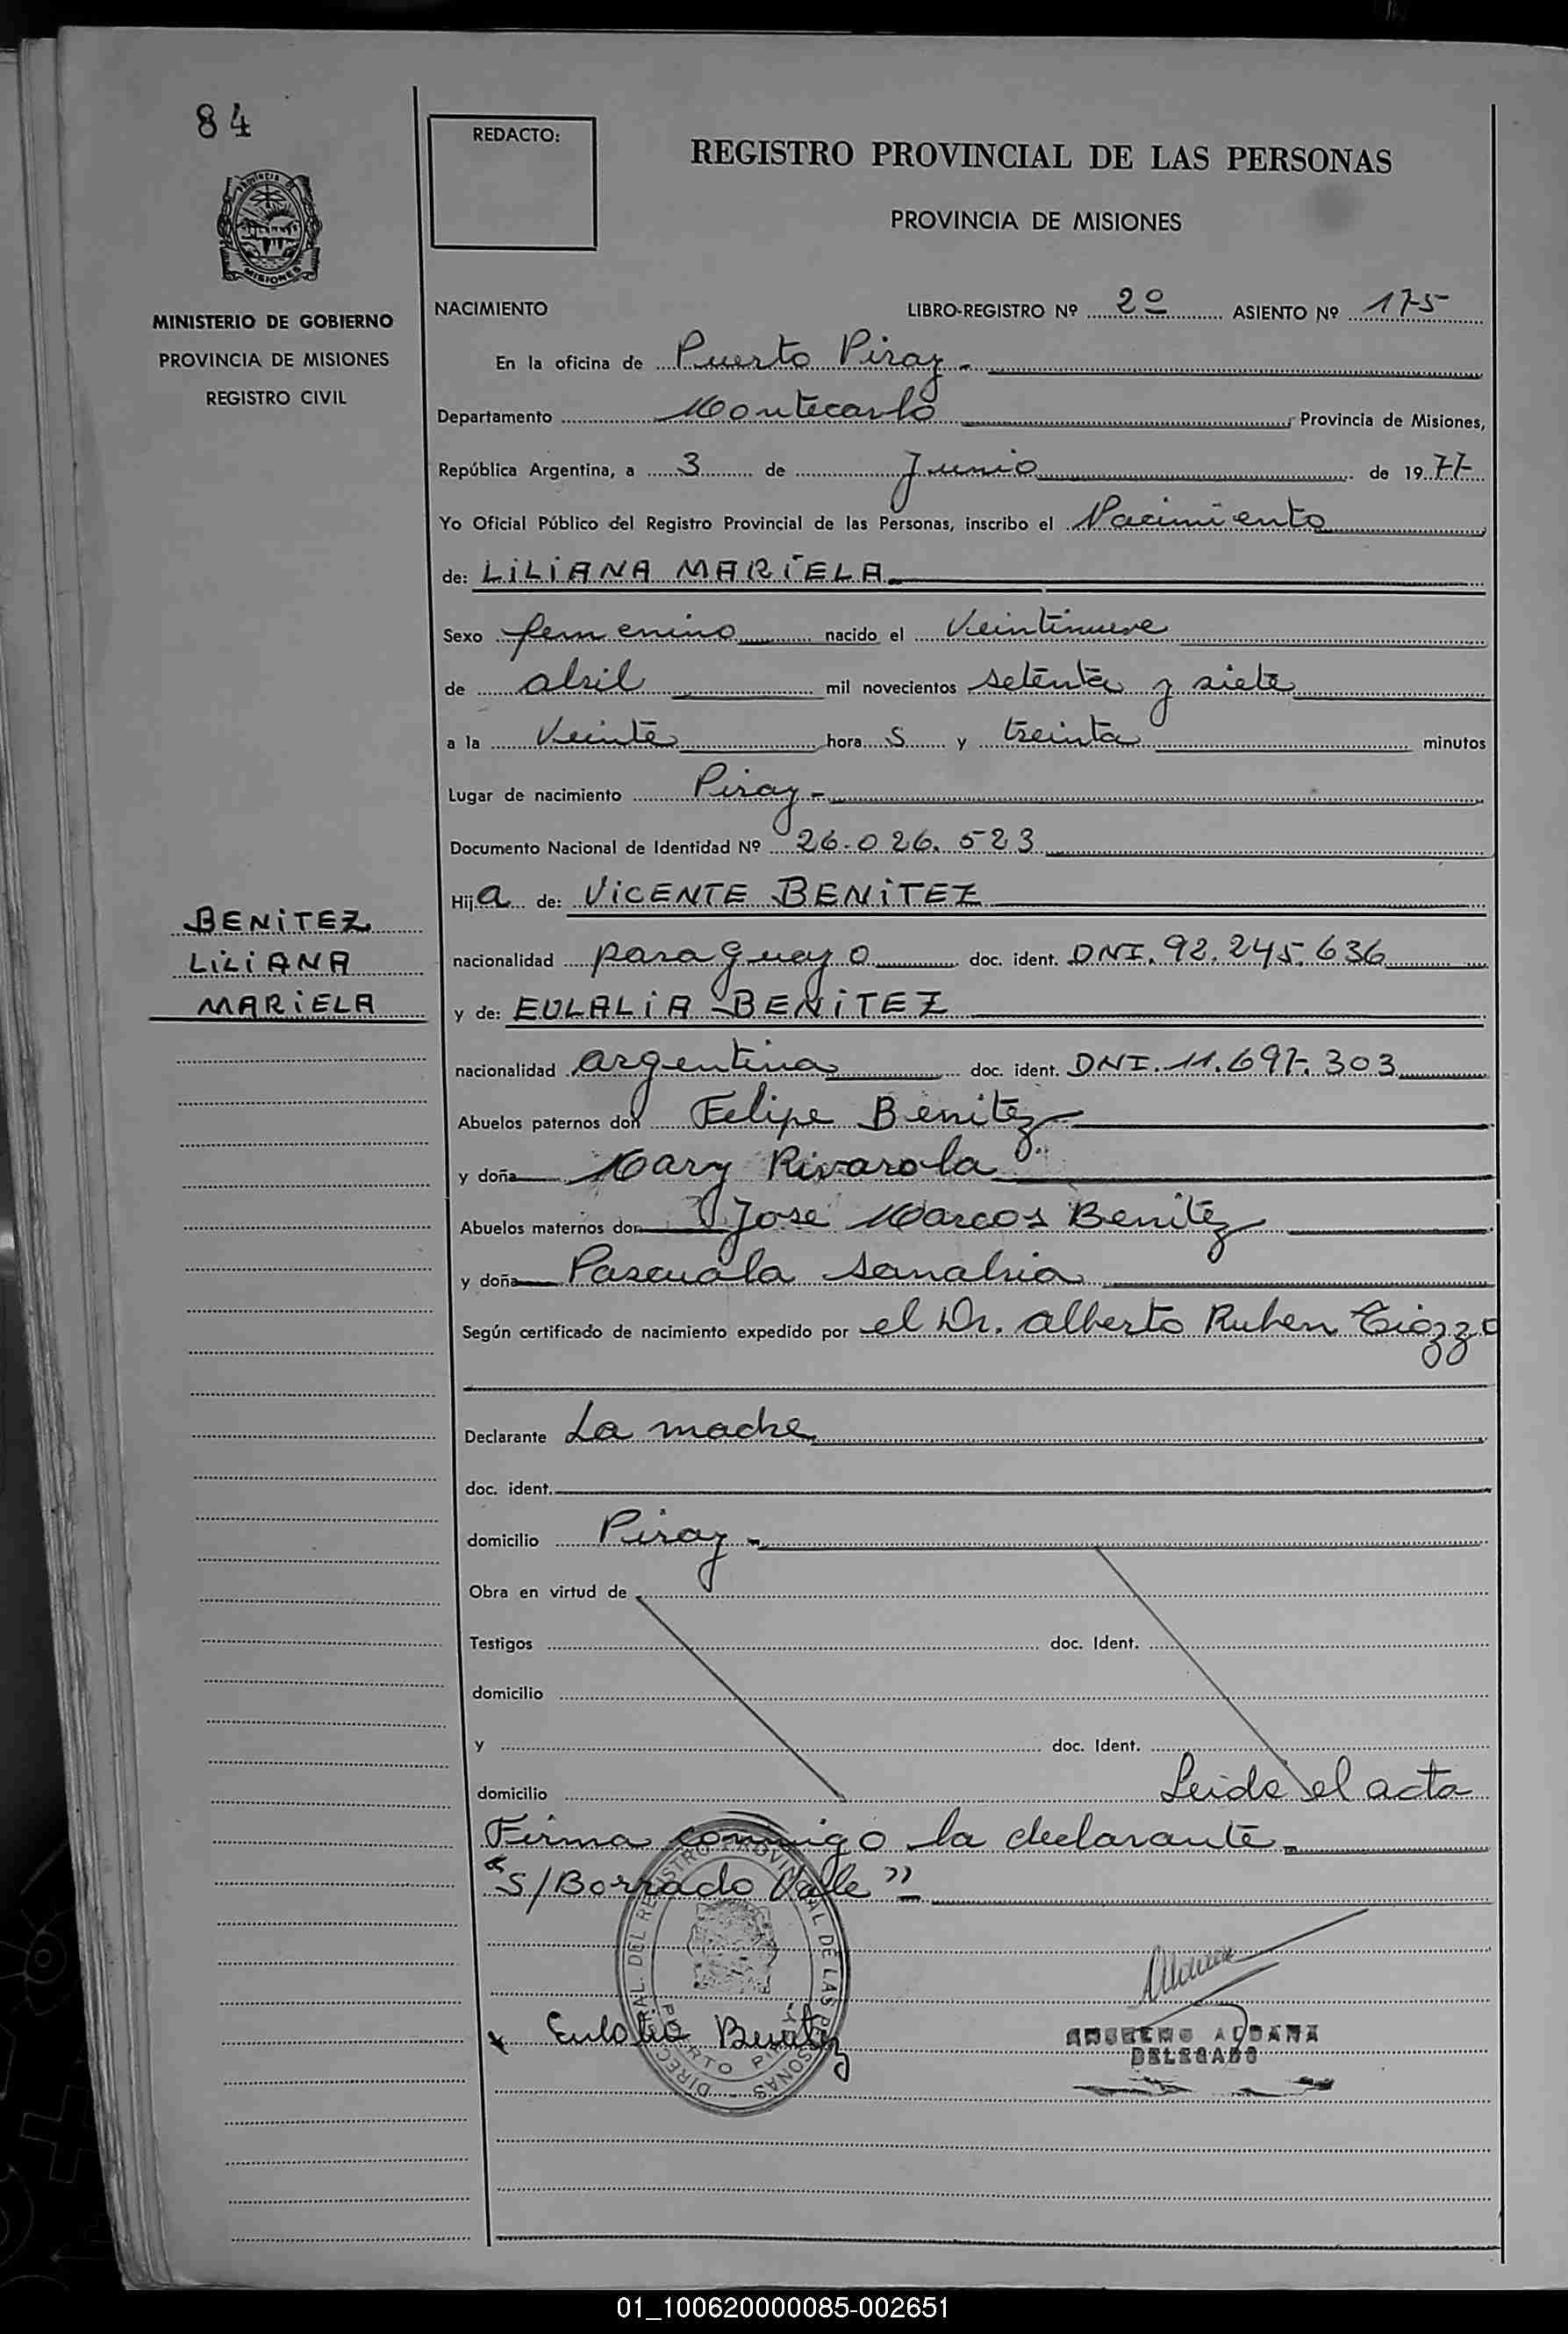 84
REDACTO:
REGISTRO PROVINCIAL DE LAS PERSONAS
PROVINCIA DE MISIONES
MISIONES
MINISTERIO DE GOBIERNO
PROVINCIA DE MISIONES
REGISTRO CIVIL
NACIMIENTO LIBRO-REGISTRO Nº 2º ASIENTO Nº 175
En la oficina de Puerto Piray -
Departamento Montecarlo Provincia de Misiones,
República Argentina, a 3 de Junio de 1977
Yo Oficial Público del Registro Provincial de las Personas, inscribo el Nacimiento
de: LILIANA MARIELA
Sexo femenino nacido el Veintinueve
de abril mil novecientos setenta y siete
a la Veinte hora s y treinta minutos
Lugar de nacimiento Piray -
Documento Nacional de Identidad Nº 26.026.523
Hij a de: VICENTE BENITEZ
nacionalidad paraguayo doc. ident. DNI. 92.245.636
y de: EULALIA BENITEZ
nacionalidad argentina doc. ident. DNI. 11.697.303
BENITEZ
LILIANA
MARIELA
Abuelos paternos don Felipe Benitez
y doña Mary Rivarola
Abuelos maternos don Jose Marcos Benitez
y doña Pascuala Sanabria
Según certificado de nacimiento expedido por el Dr. Alberto Ruben
Declarante La madre
doc. ident.
domicilio Piray -
Obra en virtud de
Testigos doc. Ident.
domicilio
y doc. Ident.
domicilio Leida el acta
Firma conmigo la declarante
"S/Borrado Valle"
DIREC. GRAL. DEL REGISTRO PROVINCIAL DE LAS PERSONAS
PUERTO PIRAY
Eulalia Benitez
ANSELMO ALDANA
DELEGADO
01_100620000085-002651